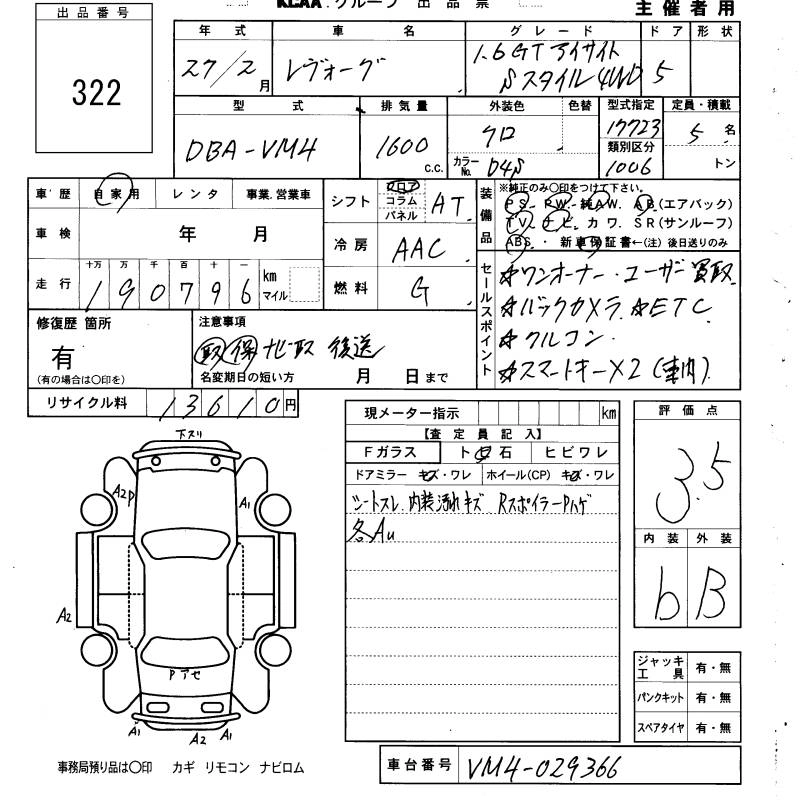 KCAA.グループ 出品票
主催者用
出品番号
322
年式 車名 グレード ドア 形状
27/2月 レヴォーグ 1.6GTアイサイト Sスタイル4WD 5
型式 排気量 外装色 色替 型式指定 定員・積載
DBA-VM4 1600c.c. クロ 17723 5名
カラーNo. D4S 類別区分 1006 トン
車歴 自家用 レンタ 事業.営業車
シフト フロア コラム パネル AT
装備品 ※純正のみ〇印をつけて下さい。
PS. PW. 純AW. AB(エアバック)
TV. ナビ. カワ. SR(サンルーフ)
ABS. ・ 新車保証書←(注)後日送りのみ
車検 年 月
冷房 AAC
走行 十万 万 千 百 十 一
190796 km マイル
燃料 G
セールスポイント
☆ワンオーナー・ユーザー買取
☆バックカメラ ☆ETC
☆クルコン
☆スマートキーX2(車内)
修復歴 箇所
有
(有の場合は〇印を)
注意事項
取 保 ナビ取 後送
名変期日の短い方 月 日まで
リサイクル料 13610円
現メーター指示 km
【査定員記入】
Fガラス ト 石 ヒビワレ
ドアミラー キズ・ワレ ホイール(CP) キズ・ワレ
シートスレ. 内装汚れキズ RスポイラーPハゲ
各Au
評価点
3.5
内装 外装
b B
下スリ
A2P
A1
A2
Pアセ
A1 A2 A1
ジャッキ工具 有・無
パンクキット 有・無
スペアタイヤ 有・無
事務局預り品は〇印 カギ リモコン ナビロム
車台番号 VM4-029366